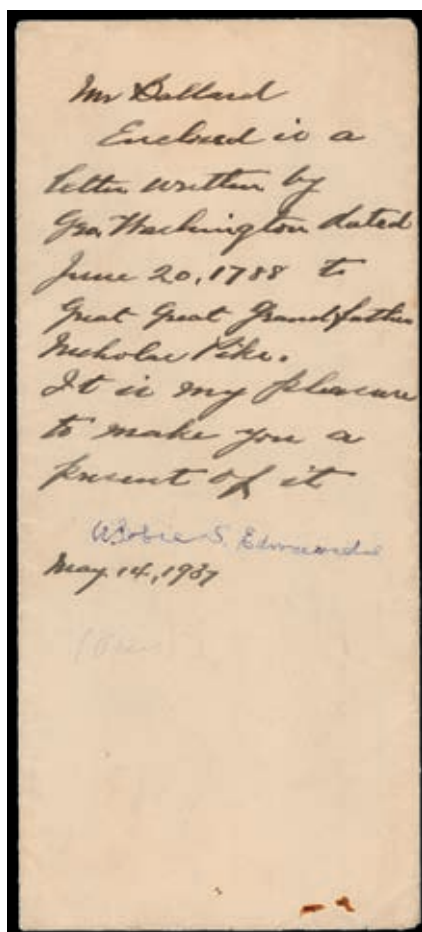 Mr Ballard
Enclosed is a
letter written by
Geo. Washington dated
June 20, 1788 to
Great Great Grandfather
Nicholas Pike.
It is my pleasure
to make you a
present of it
S. Edmands
May 14, 1937